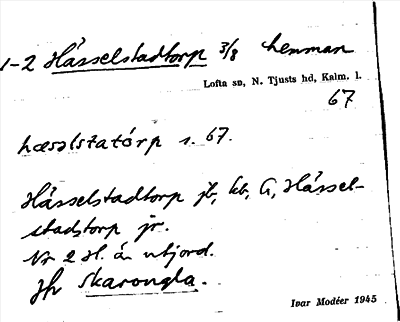 1-2 Hässelstadtorp 3/8 hemman
Lofta sn, N. Tjusts hd, Kalm. l.
67
hæsəlstatórp s. 67.
Hässelstadtorp jb, kb, G, Hässel-
stadstorp jr.
Nr 2 H. är utjord.
Hr Skarongla.
Ivar Modéer 1945